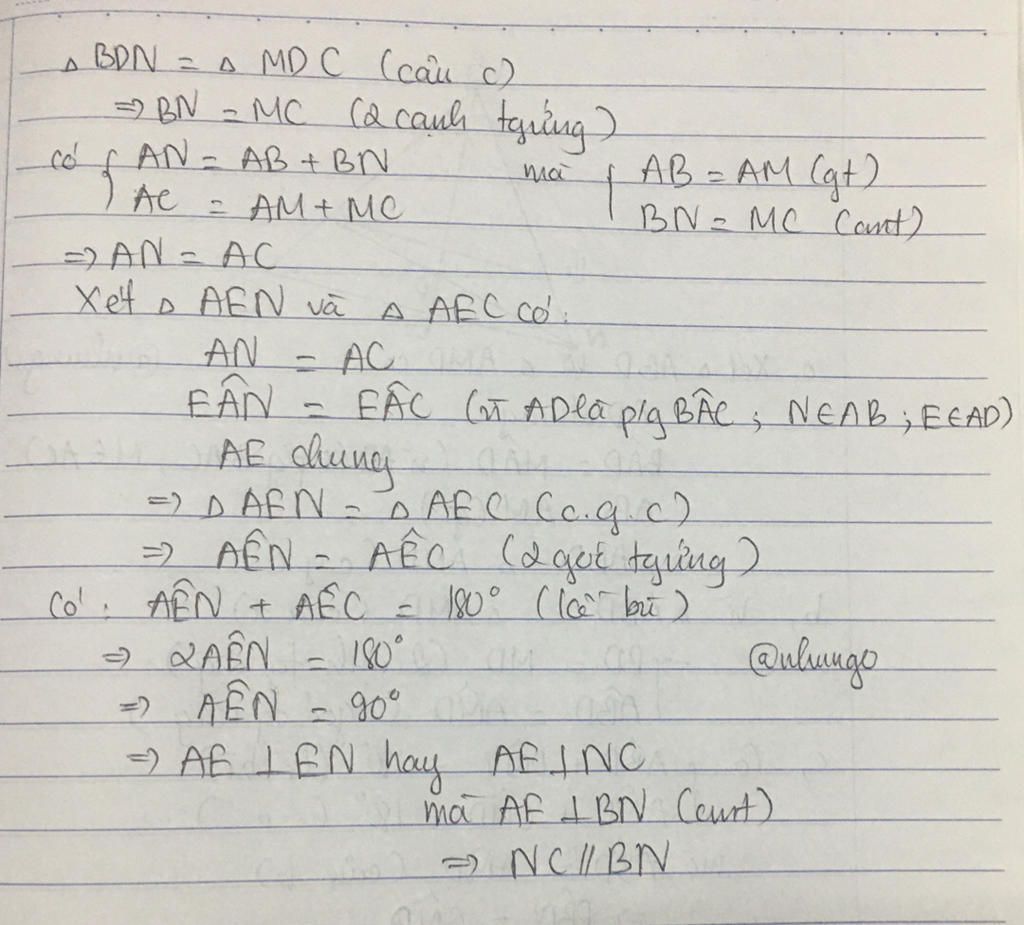 △ BDN = △ MDC (câu c)
=> BN = MC (2 cạnh tgứng)
có { AN = AB + BN mà { AB = AM (gt)
AC = AM + MC BN = MC (cmt)
=> AN = AC
Xét △ AEN và △ AEC có:
AN = AC
EÂN = EÂC (vì AD là p/g BÂC ; N∈AB ; E∈AD)
AE chung
=> △ AEN = △ AEC (c.g.c)
=> AÊN = AÊC (2 góc tgứng)
Có: AÊN + AÊC = 180° (kề bù)
=> 2AÊN = 180°
@nhungo
=> AÊN = 90°
=> AE ⊥ EN hay AE ⊥ NC
mà AE ⊥ BN (cmt)
=> NC // BN